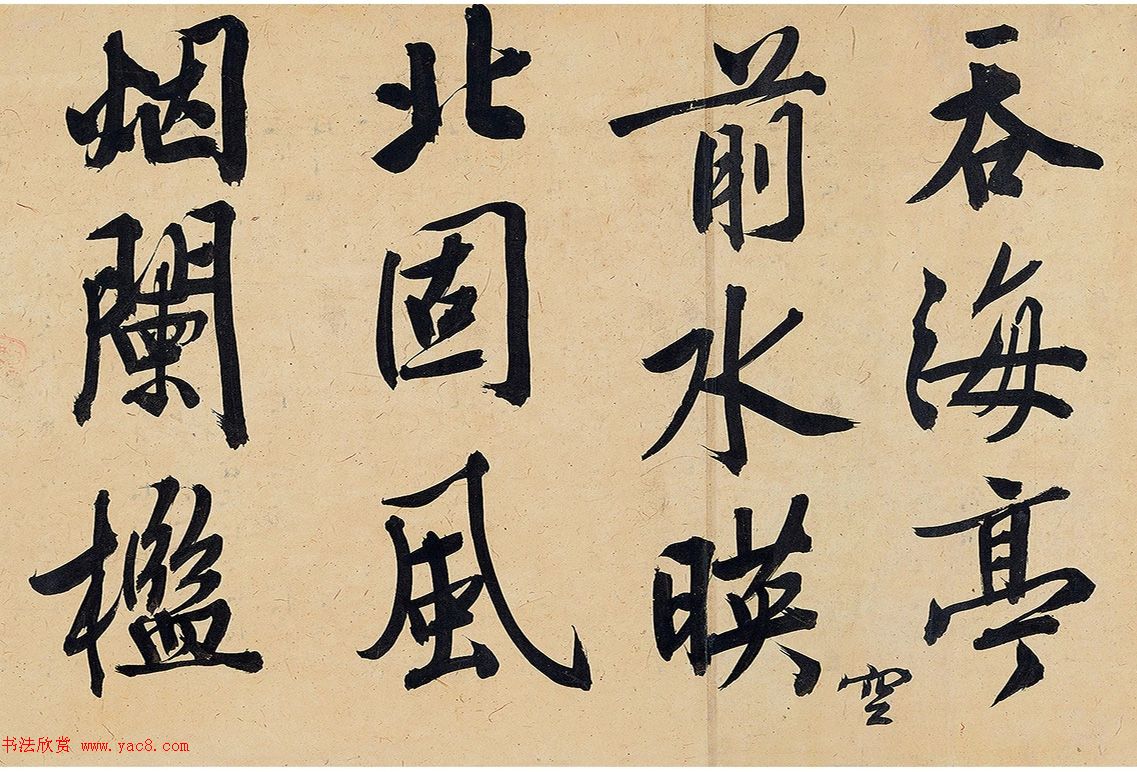 吞海亭
前水暎
空
北固風
烟闌檻
书法欣赏 www.yac8.com